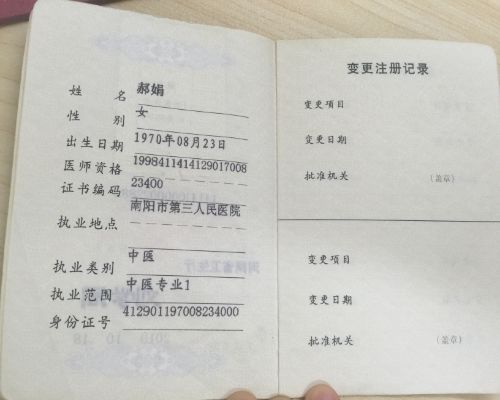 姓 名 郝娟
性 别 女
出生日期 1970年08月23日
医师资格 1998411414129017008
证书编码 23400
执业地点 南阳市第三人民医院
执业类别 中医
执业范围 中医专业1
身份证号 412901197008234000
变更注册记录
变更项目
变更日期
批准机关 (盖章)
变更项目
变更日期
批准机关 (盖章)